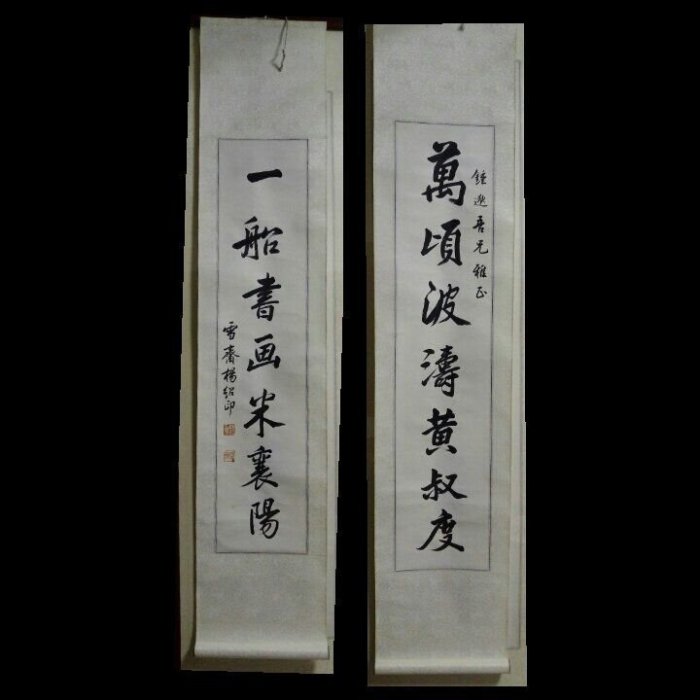 萬頃波濤黄叔度
鍾逸吾兄雅正
一船書画米襄陽
雪齋楊紹印